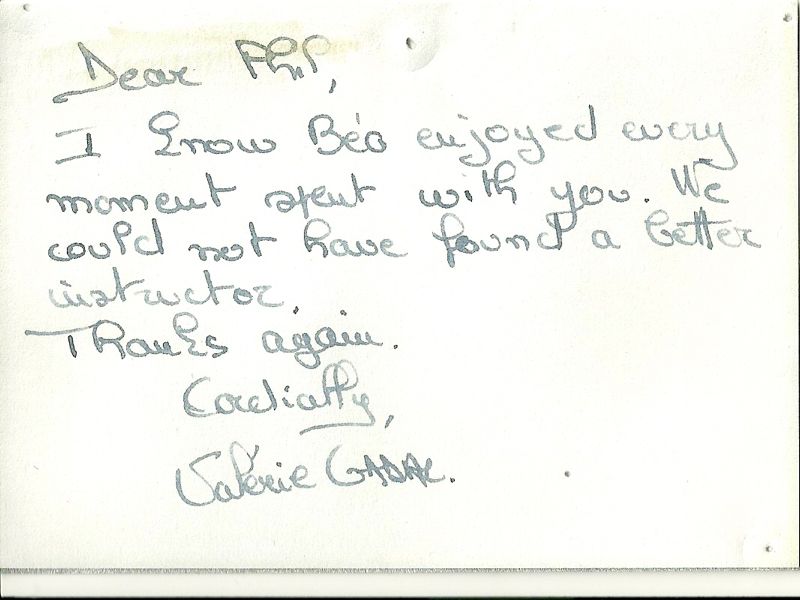 Dear Phil,
I know Béa enjoyed every
moment spent with you. We
could not have found a better
instructor.
Thanks again.
Cordially,
Valérie GADAL.